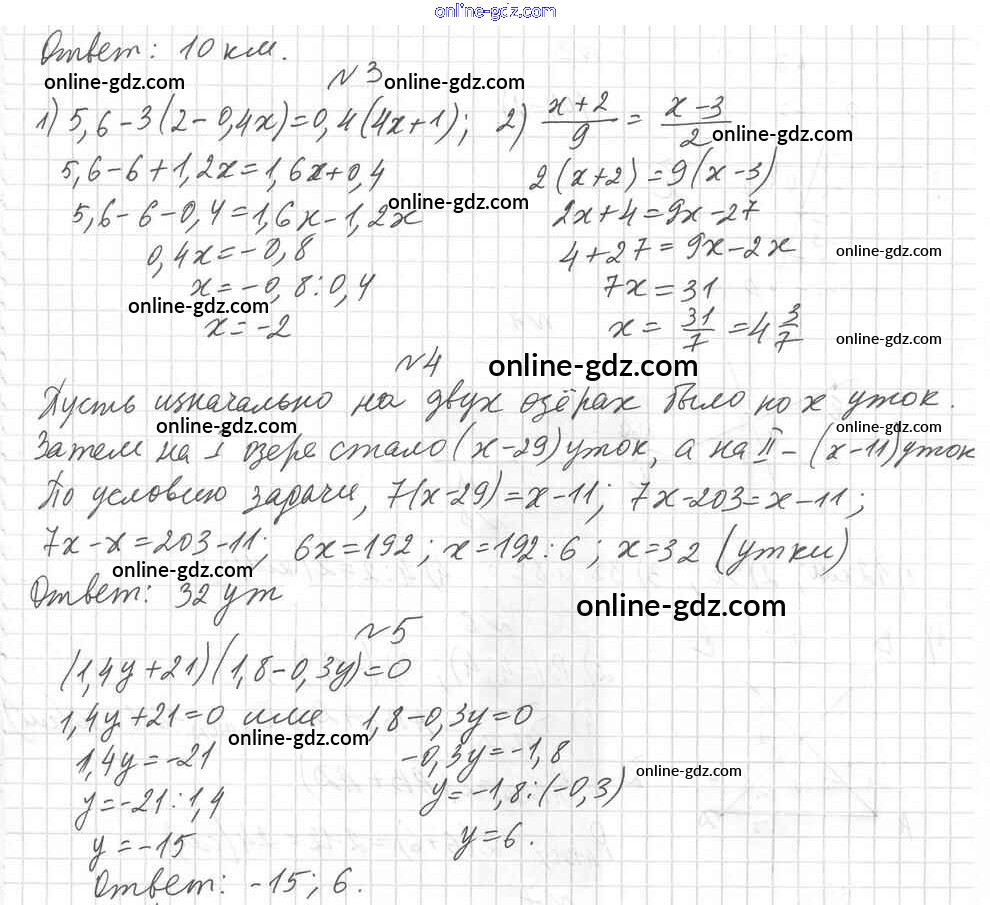 online-gdz.com
Ответ: 10 км.
online-gdz.com
№3
online-gdz.com
1) 5,6-3(2-0,4x)=0,4(4x+1); 2) (x+2)/9 = (x-3)/2
online-gdz.com
5,6-6+1,2x=1,6x+0,4 2(x+2)=9(x-3)
online-gdz.com
5,6-6-0,4=1,6x-1,2x 2x+4=9x-27
0,4x=-0,8 4+27=9x-2x
online-gdz.com
x=-0,8:0,4 7x=31
online-gdz.com
x=-2 x= 31/7 =4 3/7
online-gdz.com
№4
online-gdz.com
Пусть изначально на двух озёрах было по x уток.
online-gdz.com
online-gdz.com
Затем на I озере стало (x-29) уток, а на II - (x-11) уток
По условию задачи, 7(x-29)=x-11; 7x-203=x-11;
7x-x=203-11; 6x=192; x=192:6; x=32 (утки)
online-gdz.com
Ответ: 32 ут
online-gdz.com
№5
(1,4y+21)(1,8-0,3y)=0
1,4y+21=0 или 1,8-0,3y=0
online-gdz.com
1,4y=-21 -0,3y=-1,8
online-gdz.com
y=-21:1,4 y=-1,8:(-0,3)
y=-15 y=6.
Ответ: -15; 6.